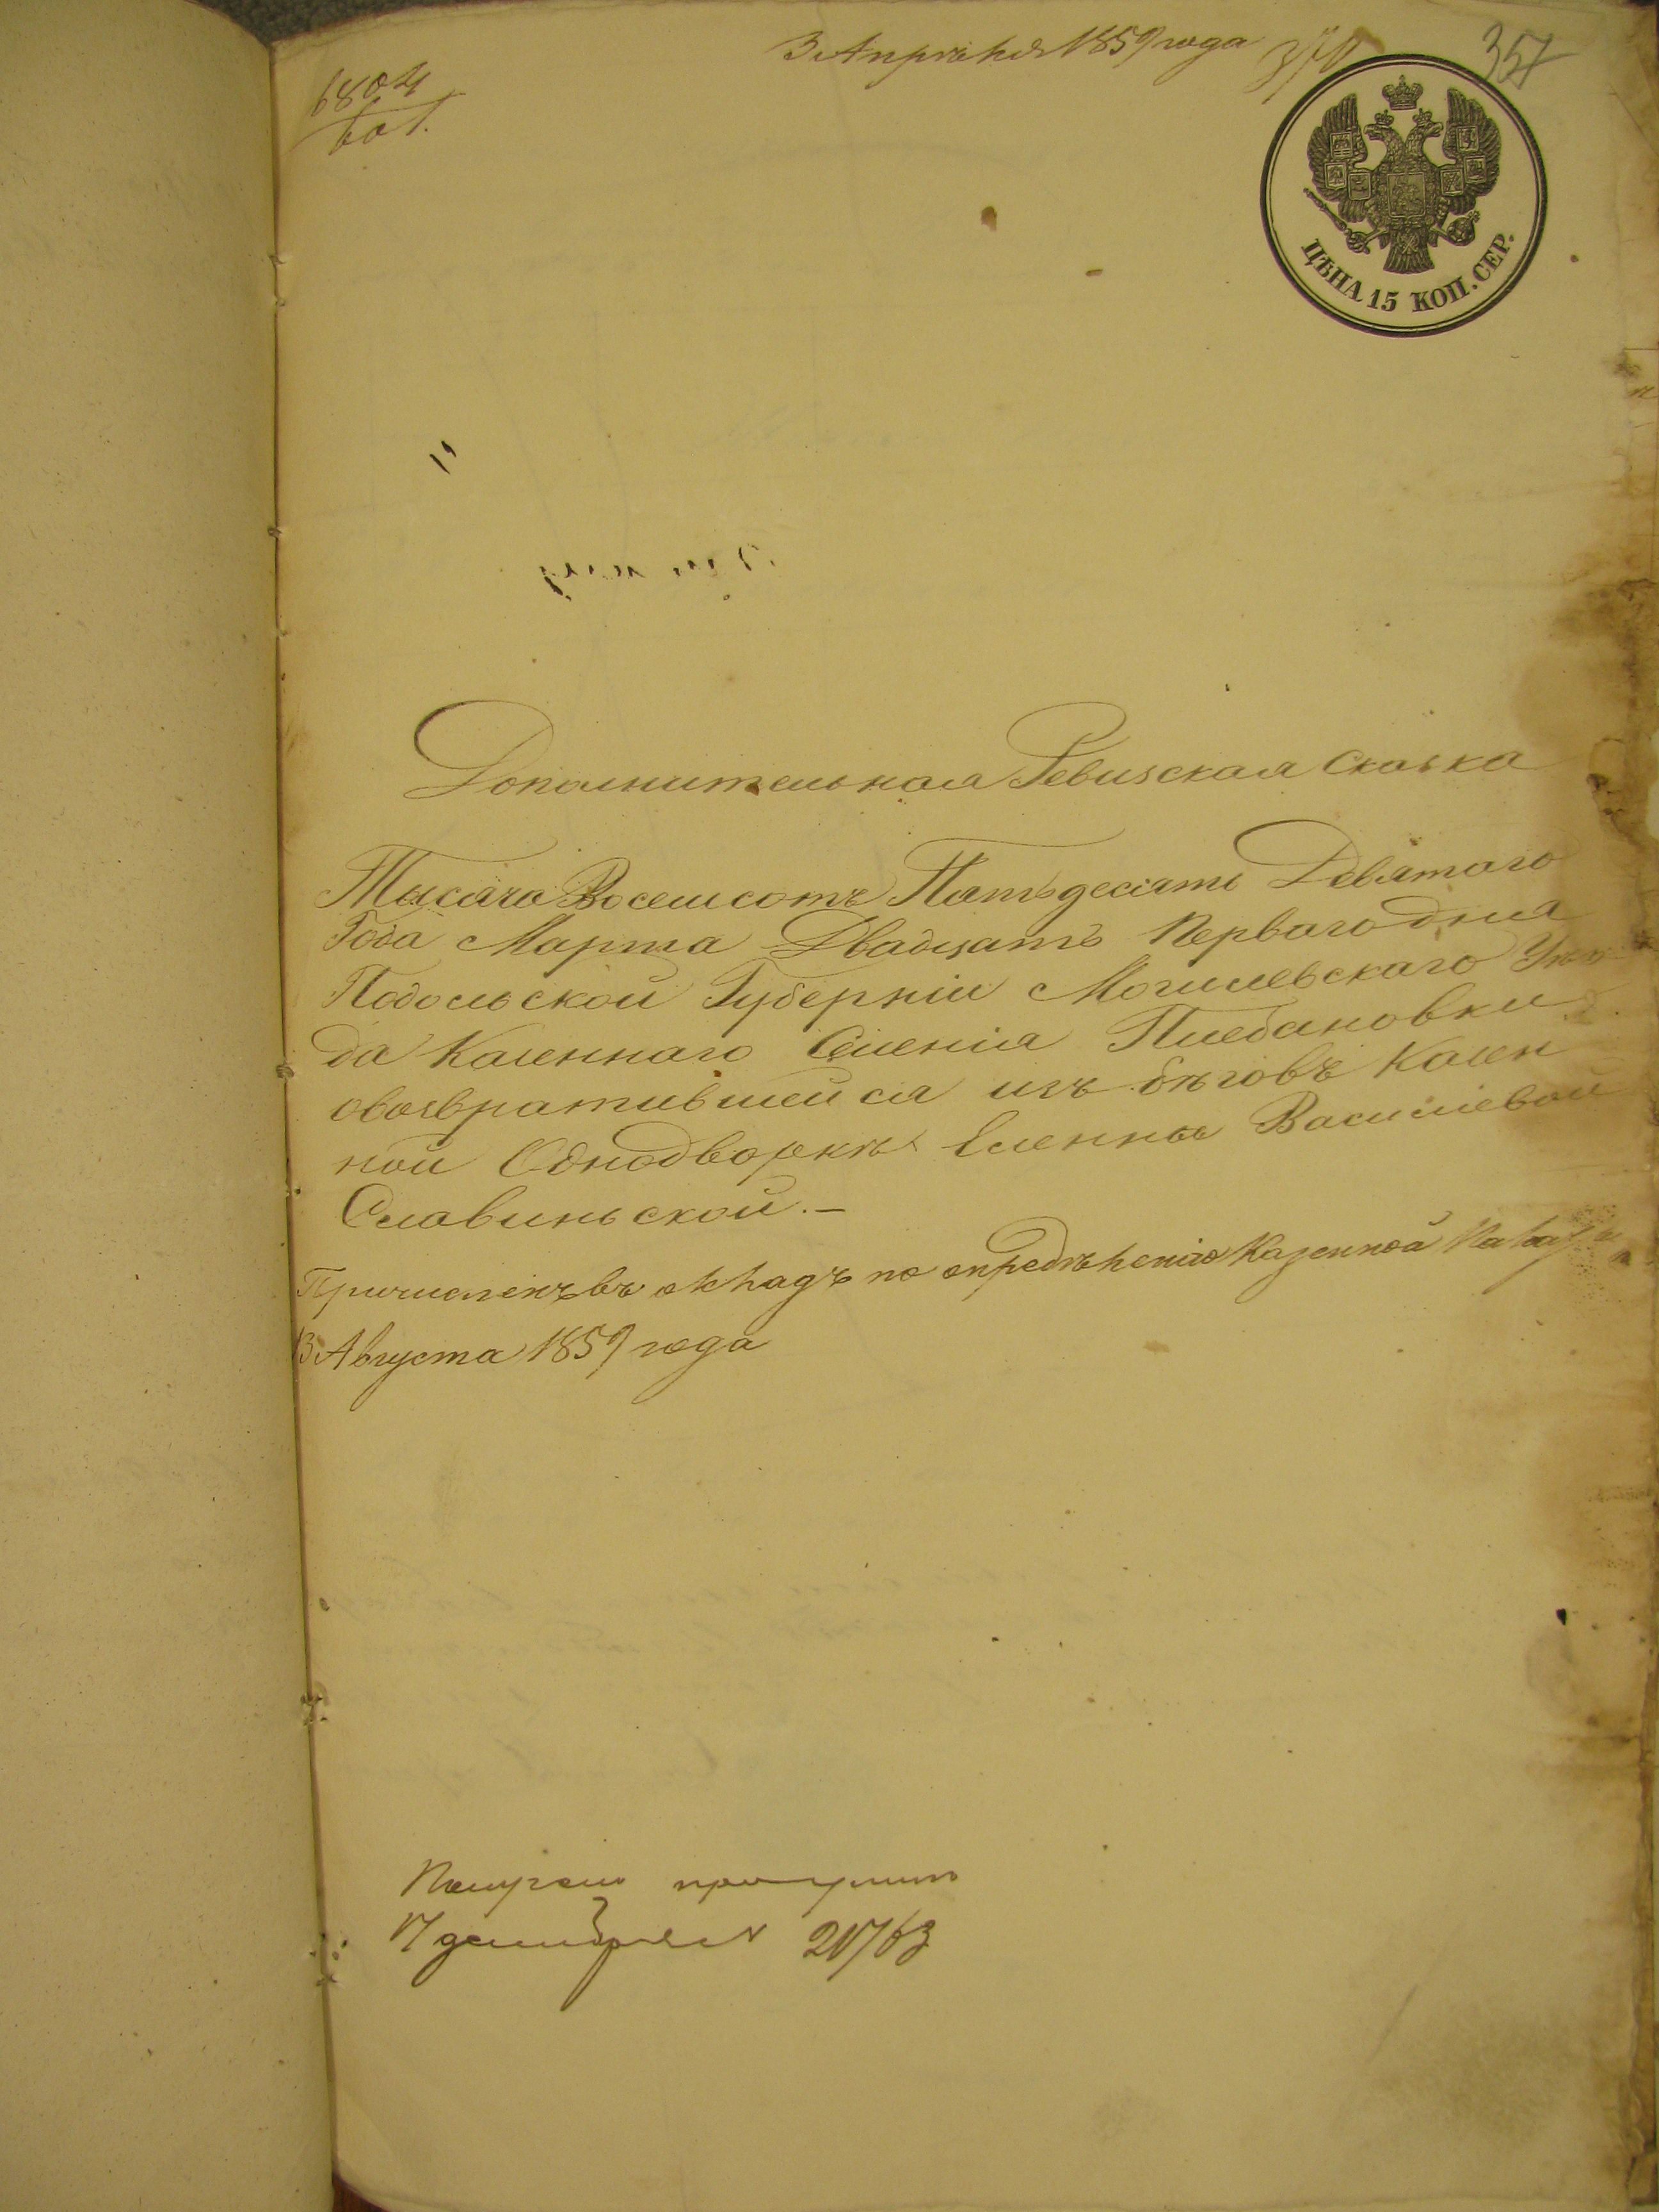 3 Апрѣля 1859 года
357
6804
601.
ЦѢНА 15 КОП. СЕР.
Дополнительная Ревизская Сказка
Тысяча Восемсотъ Патьдесять Девятаго
Года Марта Двадцать Перваго дня
Подольской Губерніи Могилевскаго Уѣз
да Казеннаго Селенія Плебановки
овозвратившейся изъ бѣговъ Казен
ной Однодворкѣ Еленны Василіевой
Славиньской.—
Причисленъ въ окладъ по опредѣленію Казенной Палаты
13 Августа 1859 года
17 декабря 21763